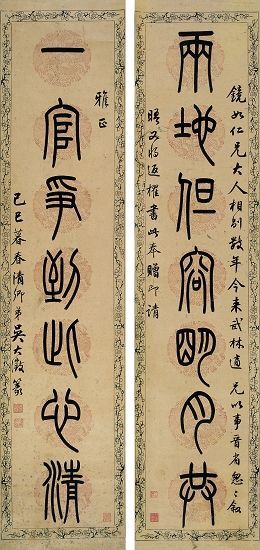 鏡如仁兄大人相別數年今來武林適兄以事晉省怱〻敘
兩地但容朙月共
晤又將返櫂書此奉贈即請
雅正
一官爭到此心清
己巳暮春清卿弟吳大澂篆